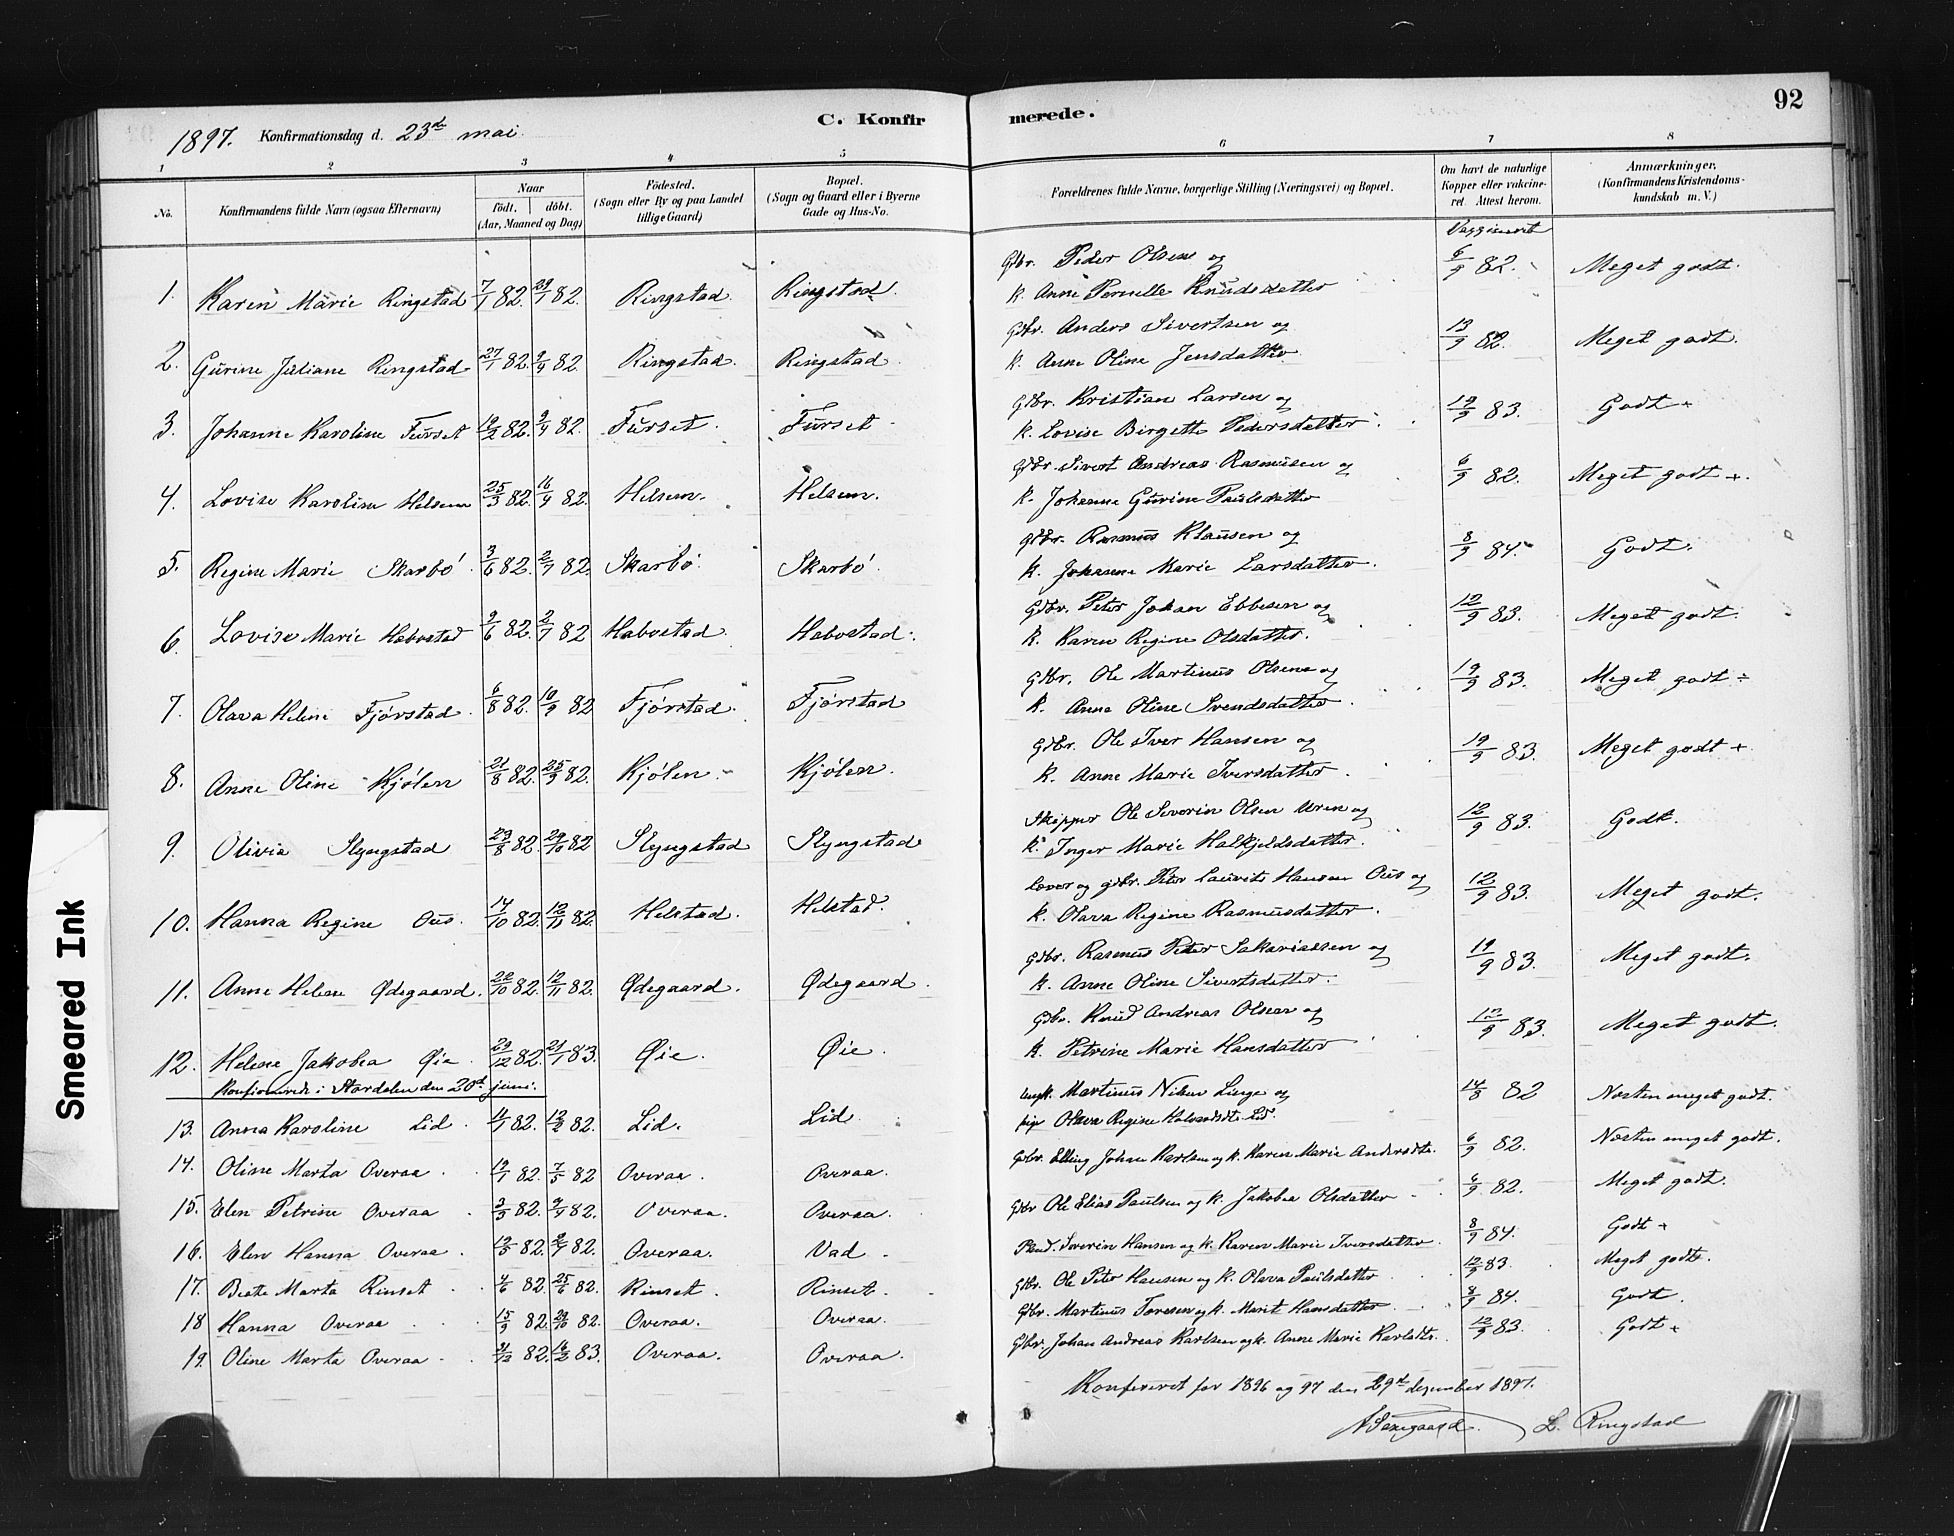 92
1897. Konfirmationsdag d. 23de mai.
C. Konfirmerede.
1 2 3 4 5 6 7 8
No. Konfirmandens fulde Navn (ogsaa Efternavn) Naar födt. döbt. (Aar, Maaned og Dag) Födested. (Sogn eller By og paa Landet tillige Gaard) Bopæl. (Sogn og Gaard eller i Byerne Gade og Hus-No. Forældrenes fulde Navne, borgerlige Stilling (Næringsvei) og Bopæl. Om havt de naturlige Kopper eller vakcineret. Attest herom. Anmærkninger, (Konfirmandens Kristendomskundskab m. V.)
1. Karen Marie Ringstad 7/1 82. 29/1 82. Ringstad. Ringstad. Gbr. Peder Olsen og 6/9 82. Meget godt.
k. Anne Pernille Knudsdatter
2. Gurine Juliane Ringstad 27/1 82. 9/4 82. Ringstad. Ringstad Gdbr. Anders Sivertsen og 13/9 82. Meget godt.
k. Anne Oline Jensdatter
3. Johanne Karoline Furset 19/2 82. 9/4 82. Furset. Furset Gdbr. Kristian Larsen og 19/9 83. Godt +
k. Lovise Birgette Pedersdatter.
4. Lovise Karoline Helsem 25/3 82. 16/4 82. Helsem. Helsem. Gdbr. Sivert Andreas Rasmusen og 6/9 82. Meget godt +.
k. Johanne Gurine Paulsdatter
5. Regine Marie Skarbö 3/6 82. 2/7 82. Skarbö. Skarbö. Gdbr. Rasmus Klausen og 8/9 84. Godt.
k. Johanne Marie Larsdatter.
6. Lovise Marie Habostad 9/6 82. 2/7 82 Habostad. Habostad. Gdbr. Peter Johan Ebbesen og 12/9 83. Meget godt.
k. Karen Regine Olsdatter.
7. Olava Helene Fjörstad. 6/8 82. 10/9 82 Fjörstad. Fjörstad Gdbr. Ole Martinus Olsen og 19/9 83. Meget godt ÷
k. Anne Oline Svendsdatter.
8. Anne Oline Kjölen 21/8 82. 25/9 82. Kjölen. Kjölen. Gdbr. Ole Iver Hansen og 19/9 83. Meget godt +
k. Anne Marie Iversdatter.
9. Olivia Slyngstad 23/8 82. 29/10 82 Slyngstad Slyngstad Skipper Ole Severin Olsen Uren og 12/9 83. Godt.
k. Inger Marie Halkjeldsdatter.
10. Hanna Regine Ous. 14/10 82. 12/11 82. Helstad. Helstad. Lærer og gdbr. Peter Laurits Hansen Ous og 12/9 83. Meget godt.
k. Olava Regine Rasmusdatter.
11. Anne Helene Ødegaard. 22/10 82. 12/11 82. Ødegaard. Ødegaard. Gdbr. Rasmus Peter Sakariassen og 19/9 83. Meget godt.
k. Anne Oline Sivertsdatter.
12. Helene Jakobea Øie. 29/12 82. 21/1 83. Øie. Øie. Gdbr. Knud Andreas Olsen og 12/9 83. Meget godt.
k. Petrine Marie Hansdatter
Konfirmerede i Stordalen den 20de juni.
13. Anna Karoline Lid. 4/1 82. 12/2 82. Lid. Lid Ungk. Martinus Nilsen Linge og 14/8 82 Næsten meget godt.
pige Olava Regine Halvardsdt. Lid.
14. Oline Marta Overaa. 19/1 82. 7/5 82 Overaa. Overaa. Gdbr. Elling Johan Karlsen og k. Karen Marie Andersdtr. 6/9 82. Næsten meget godt.
15. Elen Petrine Overaa. 3/3 82. 9/4 82. Overaa. Overaa. Gdbr Ole Elias Paulsen og k. Jakobea Olsdatter 6/9 82. Meget godt.
16. Elen Hanna Overaa. 13/5 82. 2/7 82. Overaa. Vad. Severin Hansen og k. Karen Marie Iversdatter. 8/9 84. Godt +
17. Beate Marta Rinset. 4/6 82. 25/6 82. Rinset. Rinset. Gdbr. Ole Peter Hansen og k. Olava Paulsdatter 12/9 83. Meget godt.
18 Hanna Overaa 15/9 82. 29/10 82. Overaa. Overaa. Gdbr. Martinus Toresen og k. Marit Hansdatter. 8/9 84. Godt.
19. Oline Marta Overaa. 31/12 82. 16/2 83. Overaa. Overaa. Gbr. Johan Andreas Karlsen og k. Anne Marie Karlsdtr. 12/9 83. Godt +
Konfereret for 1896 og 97 den 29de dezember 1897.
L. Ringstad
Smeared Ink